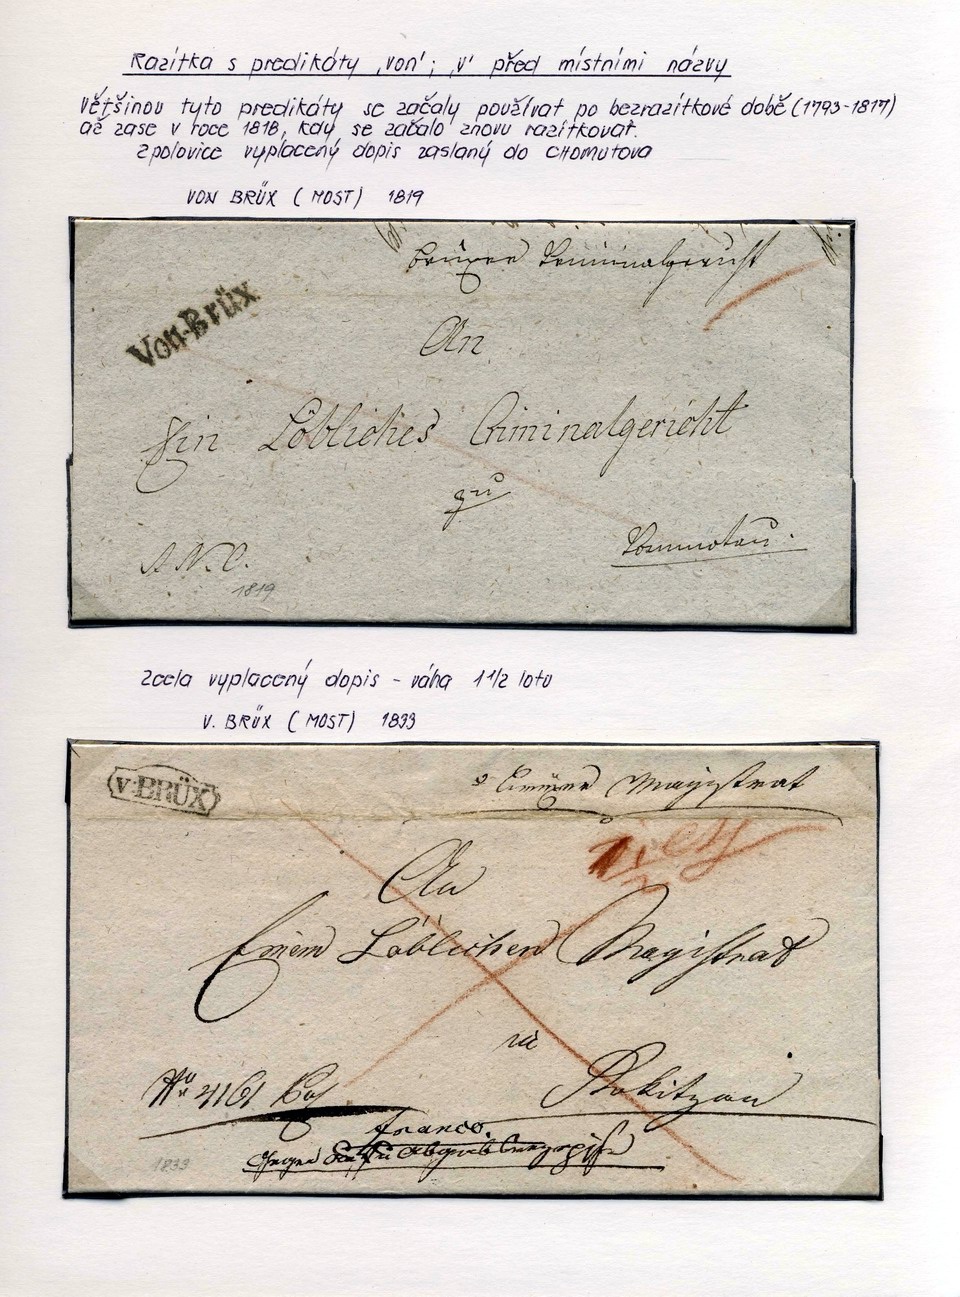 Razítka s predikáty ‚von'; ‚v' před místními názvy
většinou tyto predikáty se začaly používat po bezrazítkové době (1793-1817)
až zase v roce 1818, kdy se začalo znovu razítkovat.
Zpolovice vyplacený dopis zaslaný do CHOMUTOVA
VON BRÜX (MOST) 1819
Brüxer Criminalgericht
Von-Brüx
An
Ein Löbliches Criminalgericht
zu
Kommotau.
1819
Zcela vyplacený dopis - váha 1 1/2 lotu
V. BRÜX (MOST) 1833
v. Brüxer Magistrat
V. BRÜX
An
Einem Löblichen Magistrat
zu
Rokitzan
franco
gegen
1833